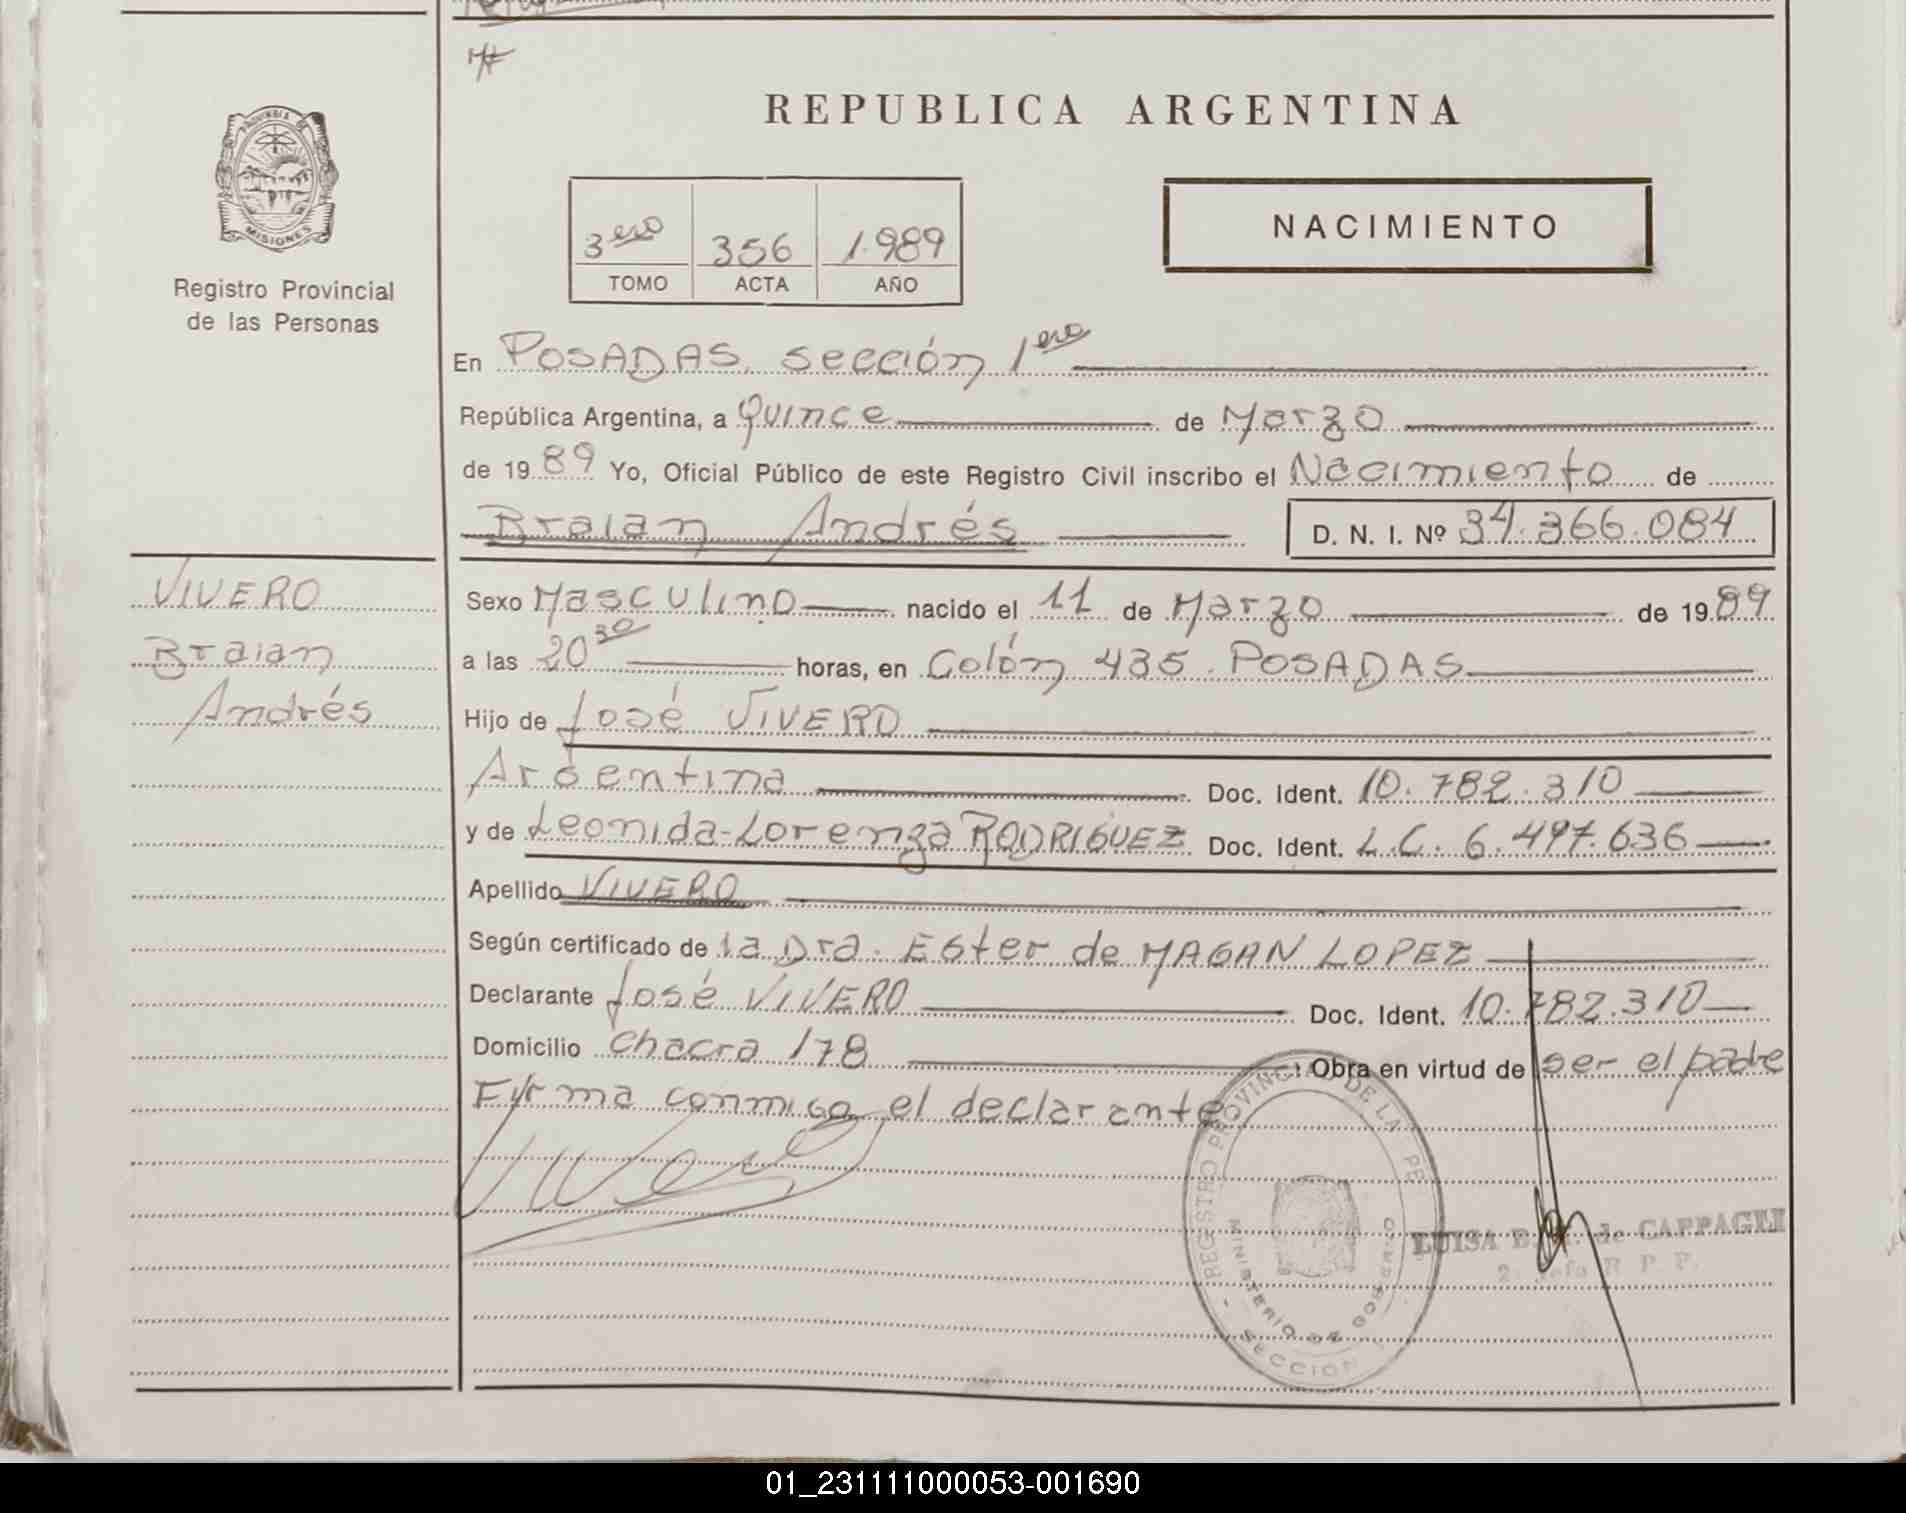 REPUBLICA ARGENTINA
PROVINCIA DE
MISIONES
Registro Provincial
de las Personas
3ero 356 1.989
TOMO ACTA AÑO
NACIMIENTO
En POSADAS. sección 1era
República Argentina, a Quince de Marzo
de 1989 Yo, Oficial Público de este Registro Civil inscribo el Nacimiento de
Braian Andrés D. N. I. Nº 34.366.084
VIVERO
Braian
Andrés
Sexo Masculino nacido el 11 de Marzo de 1989
a las 20 30 horas, en Colón 435. POSADAS
Hijo de José VIVERO
Argentina Doc. Ident. 10.782.310
y de Leonida-Lorenza RODRIGUEZ Doc. Ident. L.C. 6.497.636
Apellido VIVERO
Según certificado de la Dra. Ester de MAGAN LOPEZ
Declarante José VIVERO Doc. Ident. 10.782.310
Domicilio Chacra 178 Obra en virtud de ser el padre
Firma conmigo el declarante
REGISTRO PROVINCIAL DE LA PE
MINISTERIO DE GOBIERNO
SECCION
LUISA B. de CAPPAGLI
2. Jefa R P P.
01_231111000053-001690